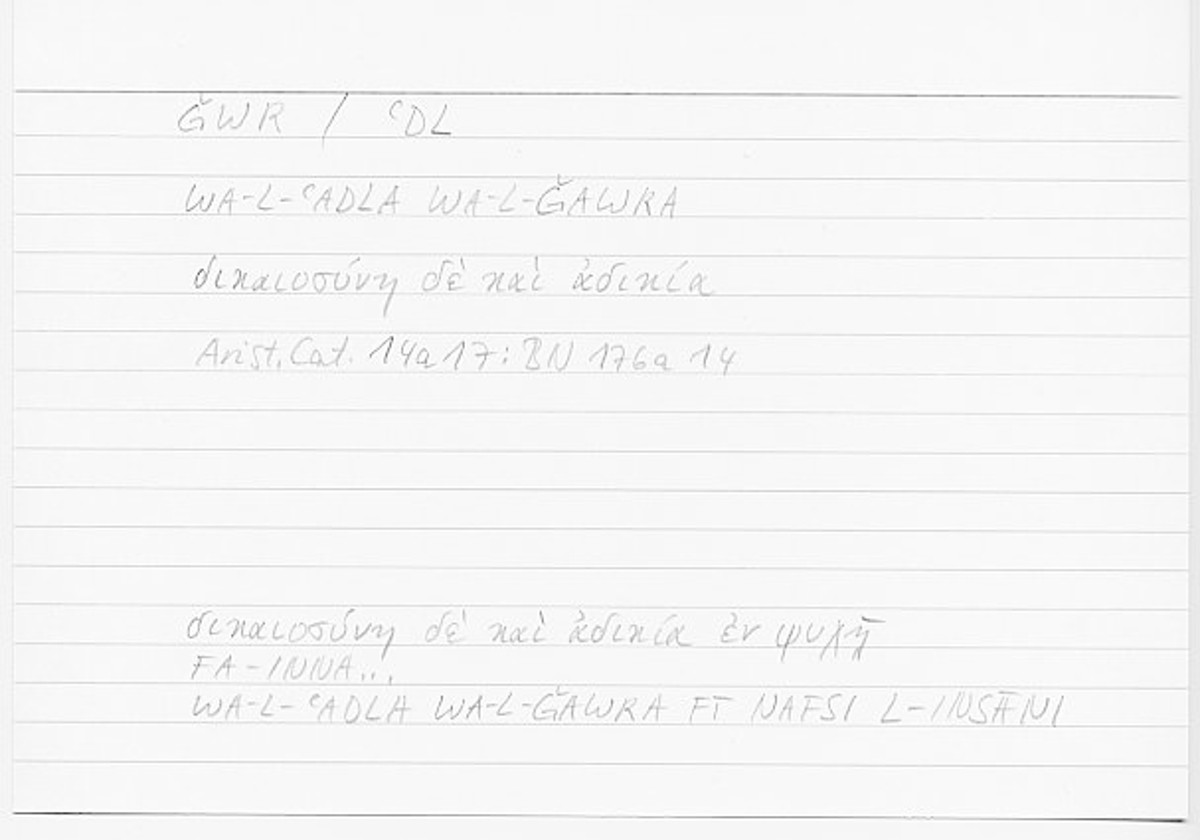 ǦWR / ʿDL
WA-L-ʿADLA WA-L-ǦAWRA
δικαιοσύνη δὲ καὶ ἀδικία
Arist. Cat. 14a17; BN 176a 14
δικαιοσύνη δὲ καὶ ἀδικία ἐν ψυχῇ
FA-INNA...
WA-L-ʿADLA WA-L-ǦAWRA FĪ NAFSI L-INSĀNI